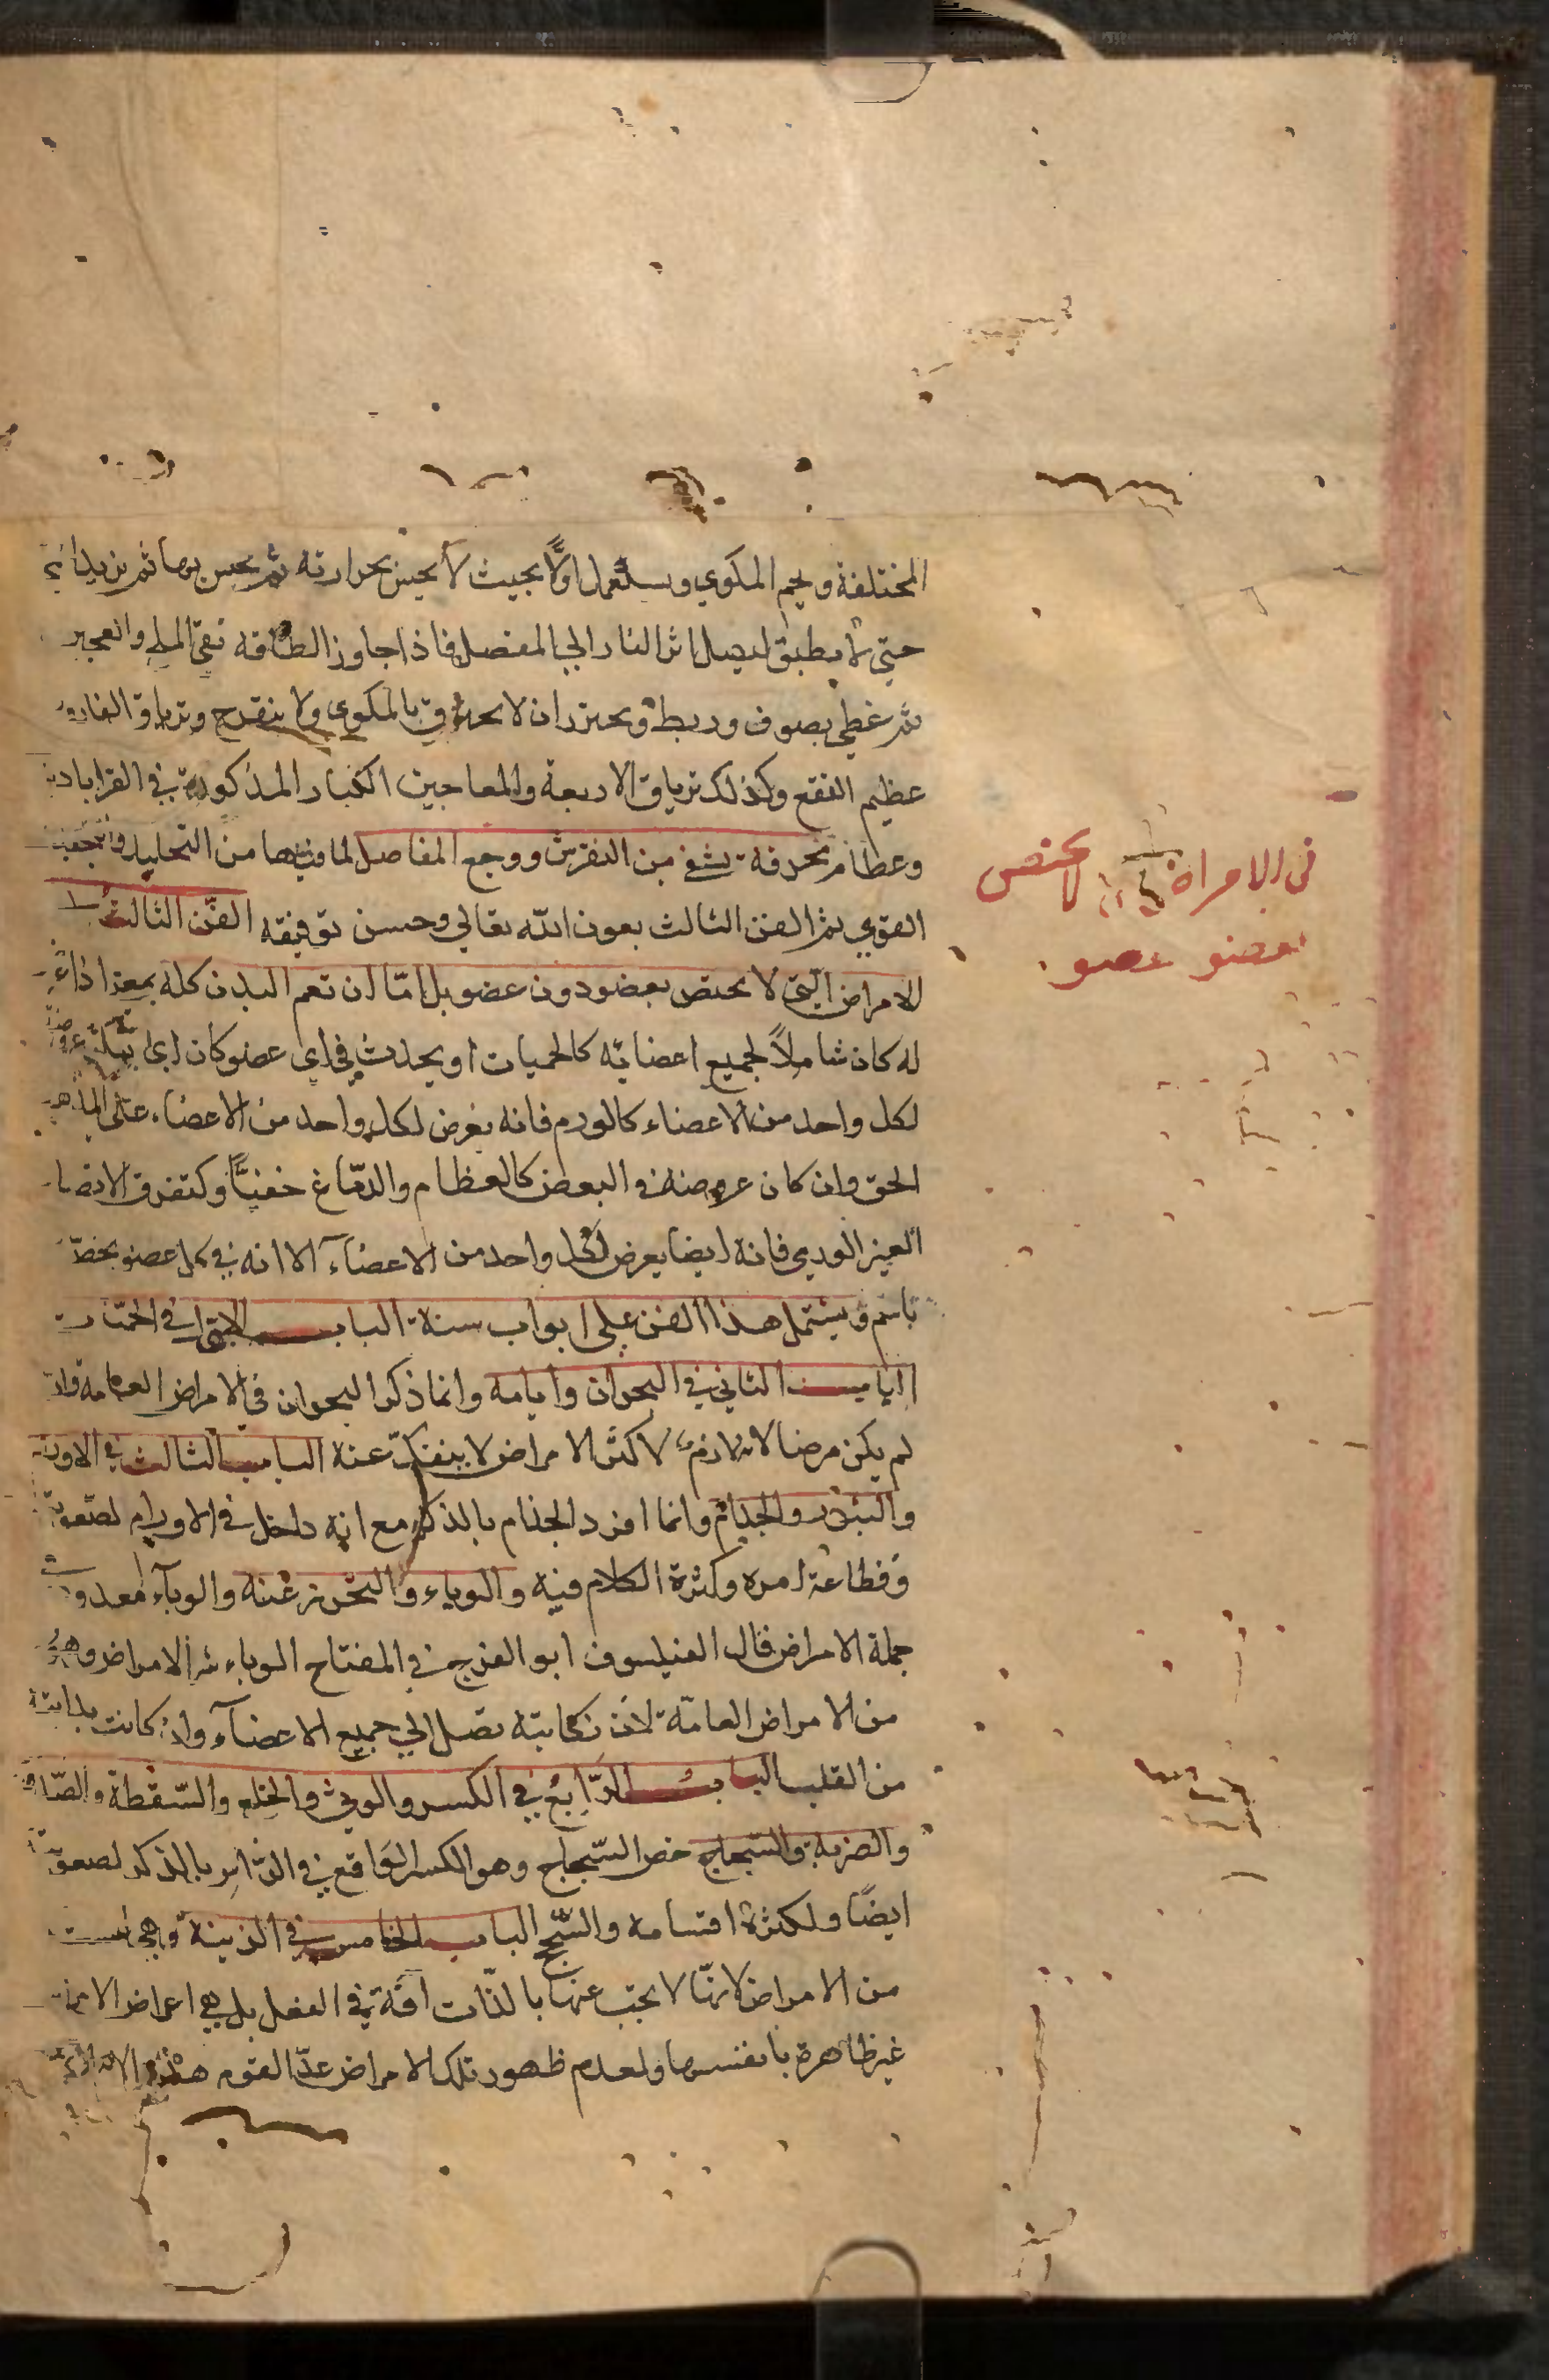 المختلفة ولحم المكوي ويستعمل اولًا بحيث لا يحس بحرارته ثم يحس بها ثم يزيد
حتى لا يطيق ليصل اثر النار الى المفصل فاذا جاوز الطاقه نقى الملح والعجين
ثم غطى بصوف وربط ويحترز ان لا يحترق بالمكوى ولا يتقرح وترياق الفاروق
عظيم النفع وكذلك ترياق الاربعة والمعاجين الكبار المذكورة في القراباذين
وعظام محرقة تشفى من النقرس ووجع المفاصل لما فيها من التحليل والتجفيف
القوي تم الفن الثانى بعون الله تعالى وحسن توفيقه الفن الثالث
الامراض التي لا تختص بعضو دون عضو بل امّا ان تعم البدن كله بمعنى اذا
له كان شاملاً لجميع اعضائه كالحميات او يحدث في اى عضو كان اى يمكن عروضه
لكل واحد من الاعضاء كالورم فانه يعرض لكل واحد من الاعضاء على المذهب
الحق وان كان عروضه في البعض كالعظام والدماغ خفيًّا وكتفرق الاتصال
الغير الوردى فانه ايضا يعرض لكل واحد من الاعضاء الا انه في كل عضو يخصّ
باسم ويشتمل هذا الفن على ابواب ستة الباب الاول في الحميات
الباب الثاني في البحران وايامه وانما ذكر البحران في الامراض العامة وان
لم يكن مرضا لانه لازم لاكثر الامراض لا ينفك عنه الباب الثالث في الاورام
والبثور والجذام وانما افرد الجذام بالذكر مع انه داخل في الاورام لصعوبة
وفظاعة امره وكثرة الكلام فيه والوباء والتحرز عنه والوباء معدود
جملة الامراض قال الفيلسوف ابو الفرج في المفتاح الوباء شر الامراض وهو
من الامراض العامّة لان نكايته تصل الى جميع الاعضاء وان كانت بدايته
من القلب الباب الرابع في الكسر والوثى والخلع والسقطة والصدمة
والضربة والشجاج خص الشجاج وهو الكسر الواقع في الراس بالذكر لصعوبته
ايضًا ولكثرة اقسامه والسّحج الباب الخامس في الزينة وهي ليست
من الامراض لانها لا يجب عنها بالذّات افة في الفعل بل هي اعراض الامراض
غير ظاهرة بانفسها ولعدم ظهور تلك الامراض عدّ القوم هذه
فى الامراض لا تختص
بعضو عضو